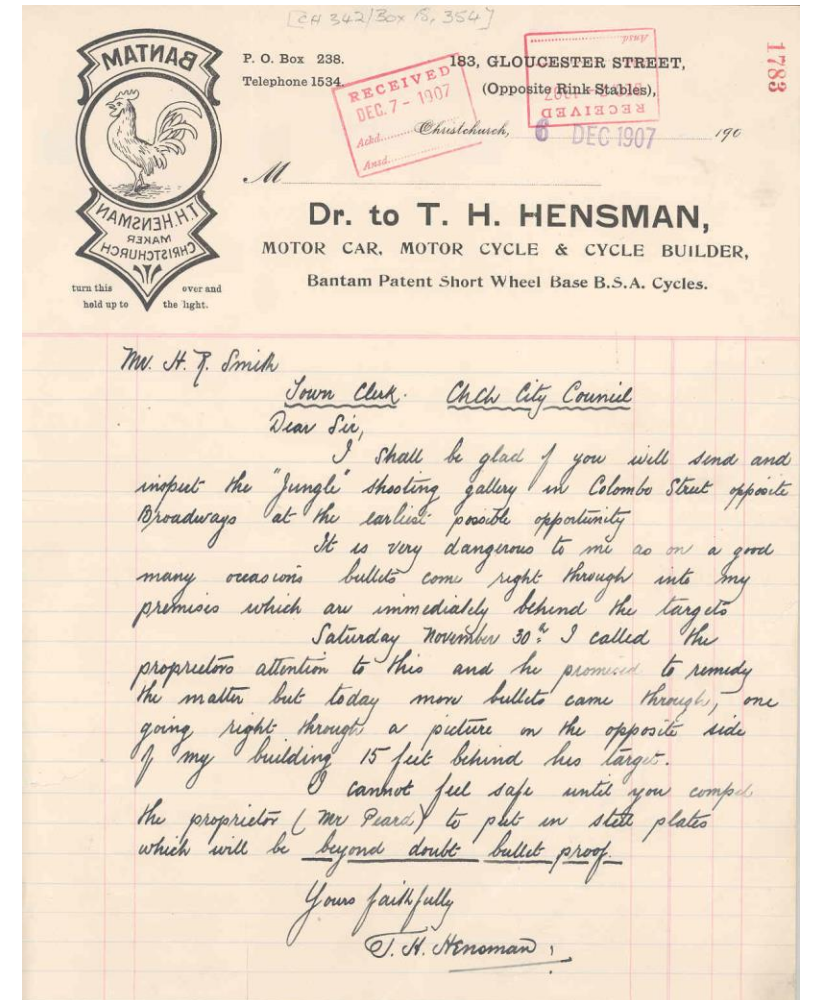 [CH 342/Box 15, 354]
BANTAM
T.H.HENSMAN
MAKER
CHRISTCHURCH
turn this over and
hold up to the light.
P. O. Box 238.
Telephone 1534.
RECEIVED
DEC. 7 - 1907
Ackd.
Ansd.
183, GLOUCESTER STREET,
(Opposite Rink Stables),
RECEIVED
Ansd
1783
Christchurch, 6 DEC 1907 190
M
Dr. to T. H. HENSMAN,
MOTOR CAR, MOTOR CYCLE & CYCLE BUILDER,
Bantam Patent Short Wheel Base B.S.A. Cycles.
Mr. H. R. Smith
Town Clerk. ChCh City Council
Dear Sir,
I shall be glad if you will send and
inspect the "Jungle" shooting gallery in Colombo Street opposite
Broadways at the earliest possible opportunity
It is very dangerous to me as on a good
many occasions bullets come right through into my
premises which are immediately behind the targets
Saturday November 30th I called the
proprietors attention to this and he promised to remedy
the matter but today more bullets came through, one
going right through a picture on the opposite side
of my building 15 feet behind his target.
I cannot feel safe until you compel
the proprietor (Mr Peard) to put in steel plates
which will be beyond doubt bullet proof.
Yours faithfully
T. H. Hensman